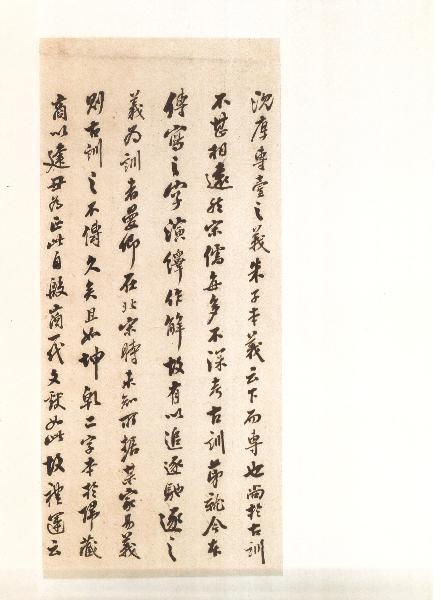 沈厚專壹之義朱子本義云下而專也尚於古訓
不甚相遠然宋儒每多不深考古訓第就今本
傳寫之字演繹作解故有以追逐馳逐之
義為訓者晏仰在北宋時未知所據某家易義
則古訓之不傳久矣且如坤乾二字本於歸藏
商以建丑為正此自殷商一代文獻如此故禮運云